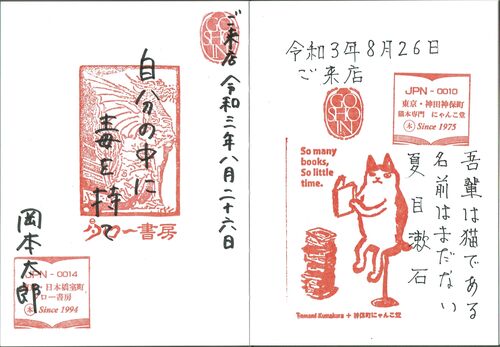 GO
SHO
IN
ご来店 令和三年八月二十六日
自分の中に
毒を持て
岡本太郎
タロー書房
JPN-0014
・日本橋室町
ロー書房
本 Since 1994
令和3年8月26日
ご来店
GO
SHO
IN
JPN-0010
東京・神田神保町
猫本専門 にゃんこ堂
本 Since 1975
So many
books,
So little
time.
吾輩は猫である
名前はまだない
夏目漱石
Tomomi Kumakura + 神保町にゃんこ堂